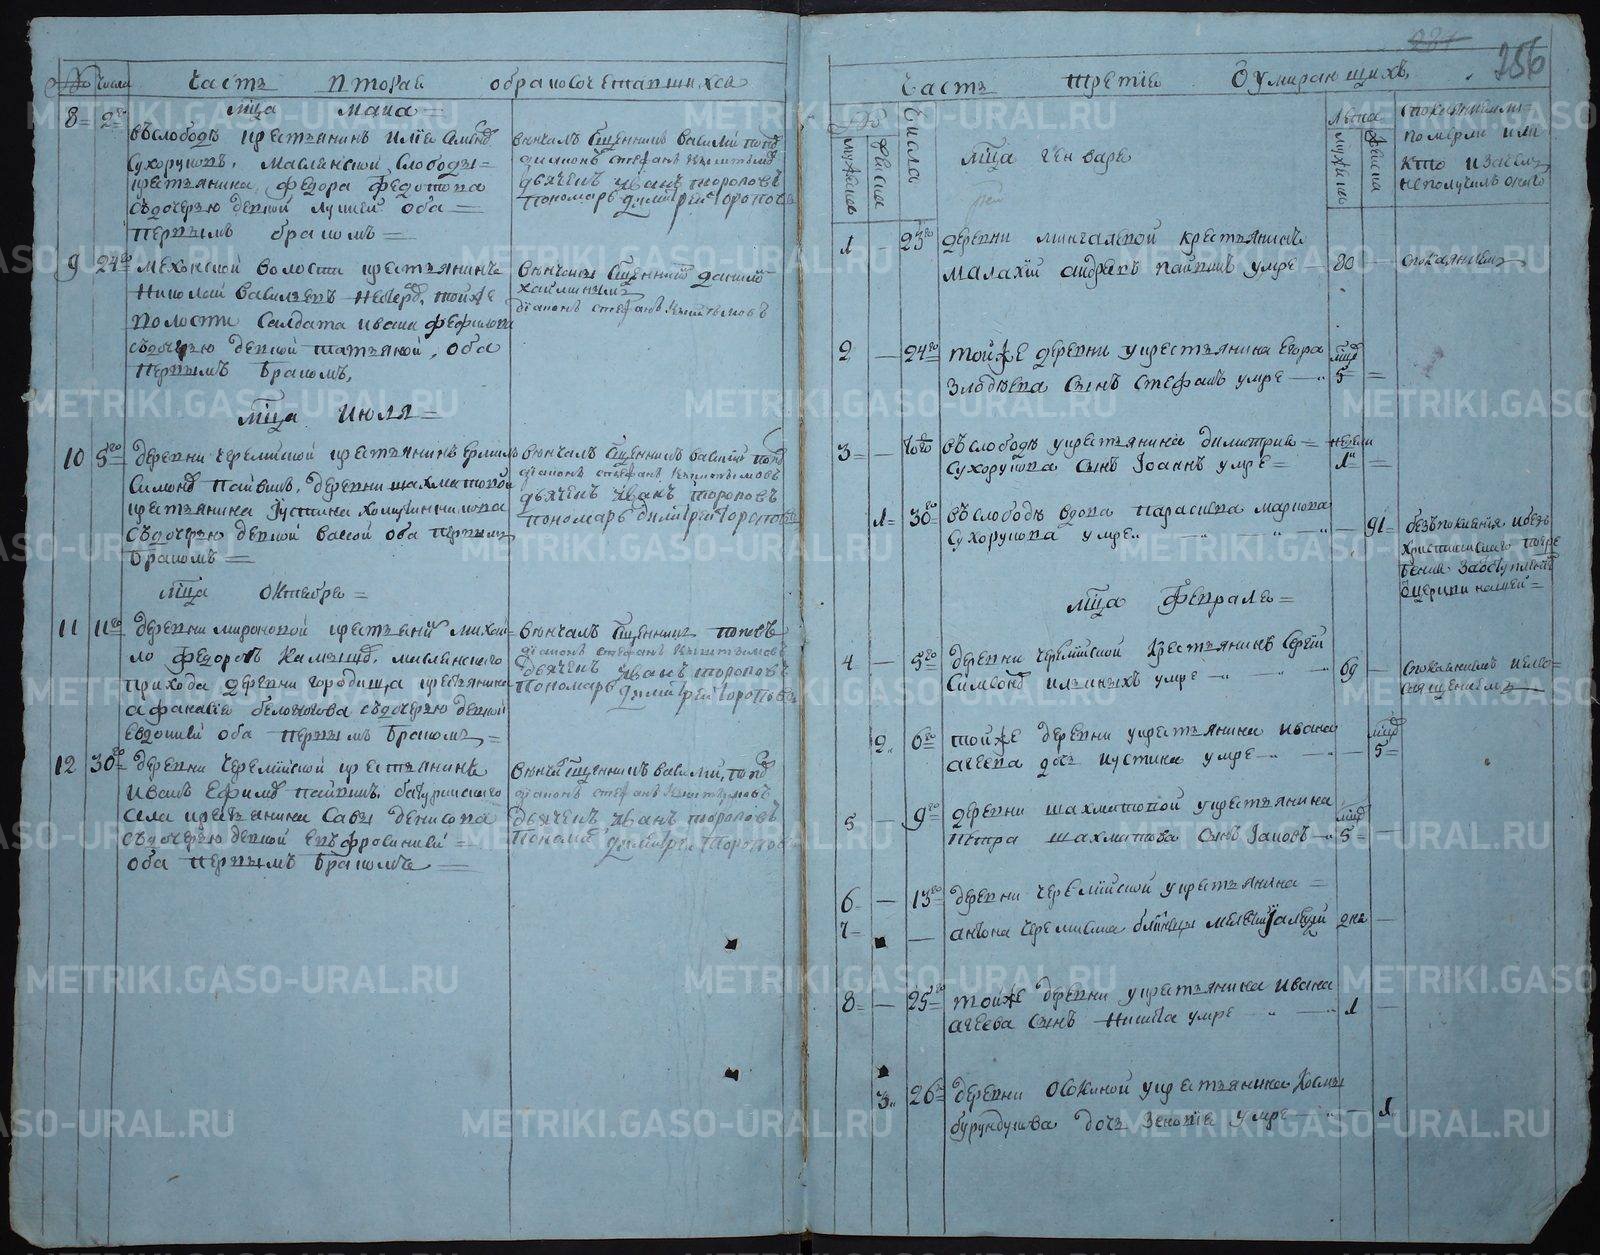 № Числа Часть Вторая о бракосочетавшихся
мца маиа
8 2го въ слободѣ крестьянинъ Илiя Семенов
Сухоруковъ, Маслянской Слободы
крестьянина Федора Федотова
съ дочерью девкой Лукией оба
первымъ бракомъ
венчалъ Священникъ Василий Попов
диаконъ стефанъ Кыштымов
дьячекъ Иванъ Тороповъ
пономарь Димитрей Тороповъ
9 24го Мехонской волости крестьянинъ
Николай Васильевъ той же
волости Салдата Ивана Феѳилова
съ дочерью девкой Татьяной, оба
первымъ бракомъ,
венчалъ Священник Данило
диаконъ стефанъ Кыштымовъ
мца Июля
10 5го деревни черемиской крестьянинъ Ермилъ
Симонов Пайвинъ, деревни шахматовой
крестьянина Густина
съ дочерью девкой Вассой оба первымъ
бракомъ
венчалъ Священникъ Василий Попов
диаконъ стефанъ Кыштымовъ
дьячекъ Иванъ Тороповъ
пономарь Димитрей Тороповъ
мца Октября
11 11го деревни мироновой крестьянин Михаи-
ло Федоровъ Камышев, маслянскаго
прихода деревни городища крестьянина
Афанасия Белоногова съ дочерью девкой
Евдокией оба первымъ бракомъ
венчалъ Священникъ Поповъ
диаконъ стефанъ Кыштымовъ
дьячекъ Иванъ Тороповъ
пономарь Димитрей Тороповъ
12 30го деревни черемиской крестьянинъ
Иванъ Ефимов Пайвинъ, батуринскаго
села крестьянина Савы Денисова
съ дочерью девкой Евфросинией
оба первымъ бракомъ
венчал Священникъ Василий Попов
диаконъ стефанъ Кыштымовъ
дьячекъ Иванъ Тороповъ
пономарь Димитрей Тороповъ
256
Часть третiя О умирающихъ
№ Числа мца генваря Лѣта
мужеска женска мужеска женска
померли или
кто и зачемъ
не получилъ онаго
1 — 23го деревни мингалевой крестьянинъ
Малахiй андреевъ Пайвинъ умре — 80 — с покаянiемъ
2 — 24го той же деревни у крестьянина Егора
Злодѣева Сынъ Стефанъ умре — мцов 5 —
3 — въ слободѣ у крестьянина димитрия
Сухорукова Сынъ Iоаннъ умре недели
— 1 30го въ слободѣ вдова Парасковья маркова
Сухорукова умре — 91 — без покаянiя и безъ
христианскаго погре
бения
мца Февраля
4 — 5го деревни черемiиской Крестьянинъ Сергiй
Симеонов умре — 69 — с покаяниемъ и елео-
священiемъ
2 6го той же деревни у крестьянина Ивана
агеева дочь Иустина умре — мцов 5
5 — 9го деревни шахматовой у крестьянина
Петра шахматова Сынъ Iаковъ мцов 5 —
6 — 13го деревни черемiиской у крестьянина
7 — антона черемисина близнецы дня —
8 — 25го той же деревни у крестьянина Ивана
агеева Сынъ Никита умре — 1
3 26 деревни осокиной у крестьянина Космы
бурундукова дочь Зеновiя умре — 1
METRIKI.GASO-URAL.RU